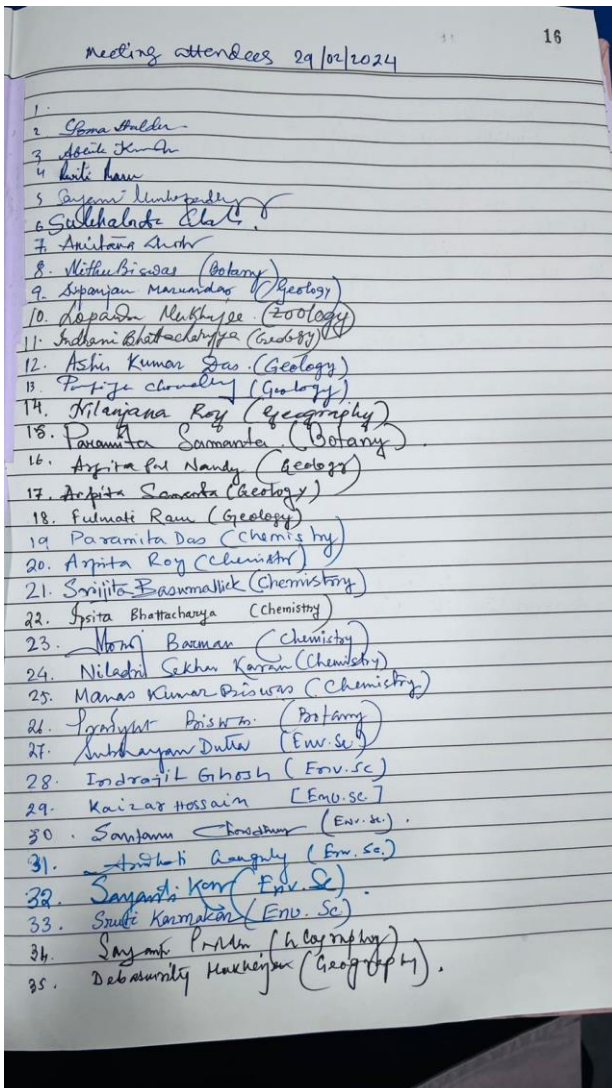 16
Meeting attendees 29/02/2024
1.
2 Soma Halder
3
4
5 Sayani Mukhopadhyay
6
7.
8. Mithu Biswas (Botany)
9. Dipanjan Mazumdar (Geology)
10. Lopamudra Mukherjee (Zoology)
11. Indrani Bhattacharyya (Geology)
12. Ashis Kumar Das. (Geology)
13. chowdhury (Geology)
14. Nilanjana Roy (Geography)
15. Paramita Samanta (Botany).
16. Arpita Pal Nandy (Geology)
17. Arpita Samanta (Geology)
18. Fulmati Ram (Geology)
19 Paramita Das (Chemistry)
20. Arpita Roy (Chemistry)
21. Srijita Basumallick (Chemistry)
22. Ipsita Bhattacharya (Chemistry)
23. Monoj Barman (Chemistry)
24. Niladri Sekhar Karan (Chemistry)
25. Manas Kumar Biswas (Chemistry)
26. Biswas. (Botany)
27. Subhayan Dutta (Env. Sc)
28. Indrajit Ghosh (Env. Sc)
29. Kaizar Hossain [Env. Sc.]
30. Santanu Chowdhury (Env. Sc.).
31. Ganguly (Env. Sc.)
32. Sayanti Kar (Env. Sc).
33. Sruti Karmakar (Env. Sc)
34. (Geography)
35. Mukherjee (Geography).